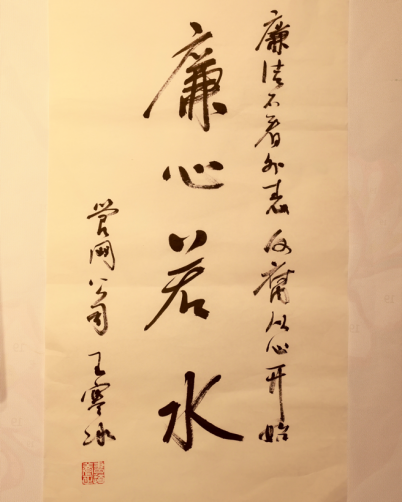 廉洁不着外表反腐从心开始
廉心若水
管网公司王寒冰